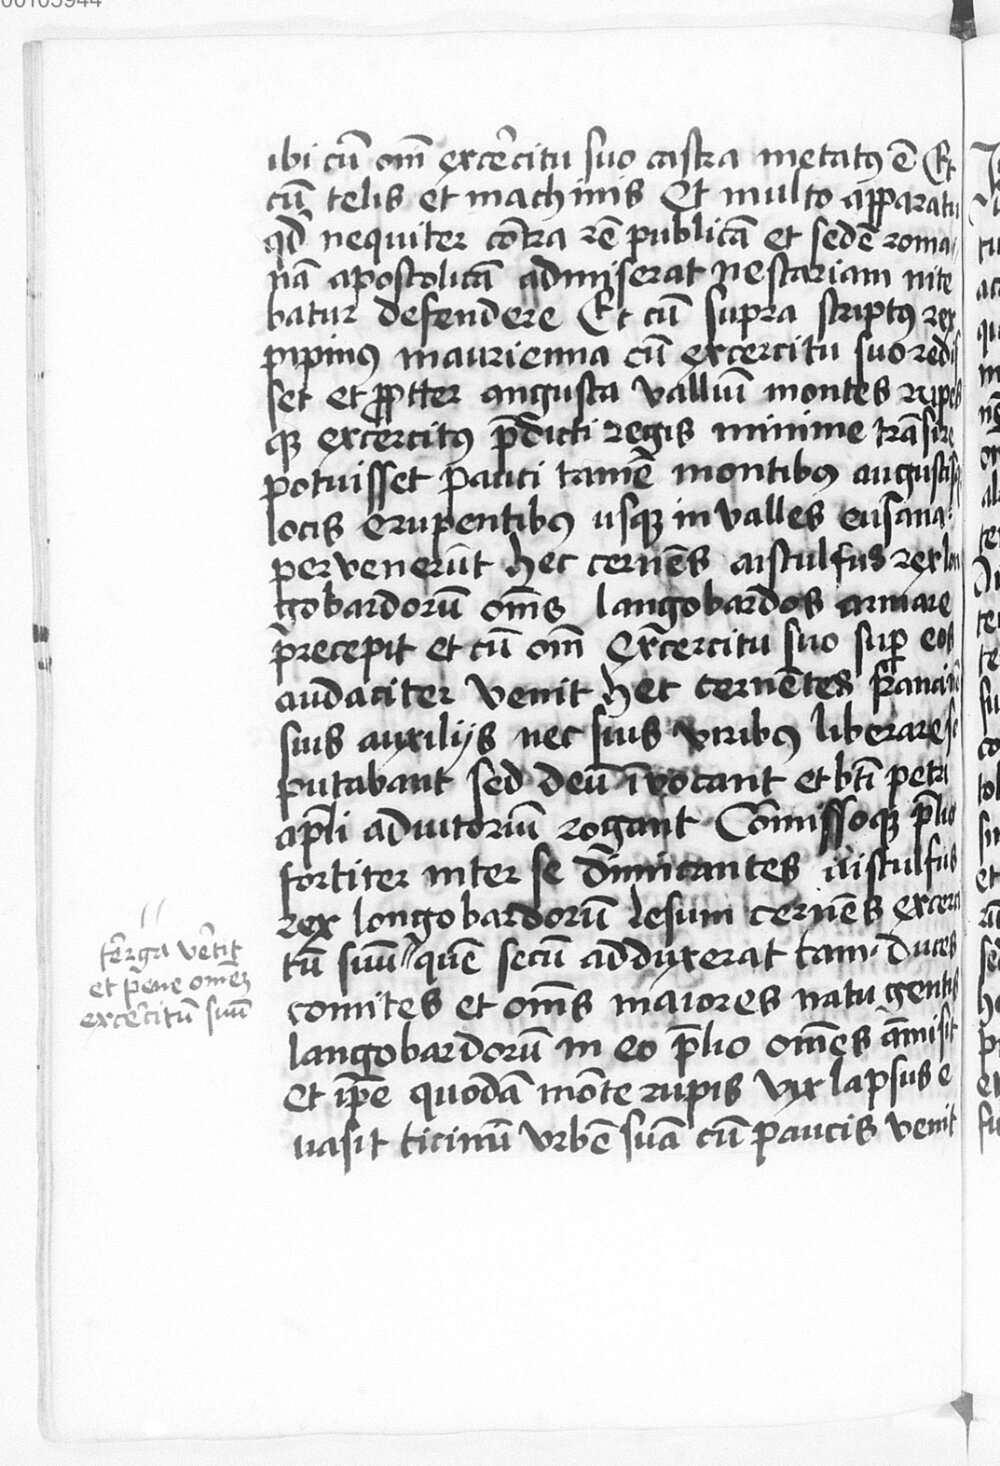 ibi cū om̄i exc̄ercitu suo castra metatꝯ ē Et
cū telis et machinis Et multo apparatu
qd̄ nequiter cōtra rē publicā et sedē roma
nā apostolicā admiserat nestariam nite
batur defendere Et cū supra scriptꝯ rex
pipinꝯ maurienna cū excercitu suo redis
set et ꝓpt̄ter angusta valliū montes rupes
qꝫ excercitꝯ p̄dicti regis minime trāsire
potuisset pauci tamē montibꝯ angustis
locis erupentibꝯ usqꝫ in valles eusana
pervenerūt hec cernēs aistulfus rex lon
gobardorū om̄s langobardos armare
p̄recepit et cū om̄i exc̄ercitu suo suꝑ eos
audaciter venit hec cernētes franci n̄
suis auxilijs nec suis viribꝯ liberare se
putabant sed deū īvocant et bt̄i petri
apl̄i adiutoriū rogant Cōmissoqꝫ p̄lio
fortiter inter se dīmicantes aistulfus
rex longobardorū lesum cernēs excerci
tū suū〃quē secū adduxerat tam duces
comites et om̄s maiores natu gentis
langobardorū in eo p̄lio omēs āmisit
et ip̄e quodā mōte rupis vix lapsus e
vasit ticinū vrbē suā cū paucis venit
〃
t̄erga v̄ertit
et p̄ene omēꝫ
exc̄ercitū suū